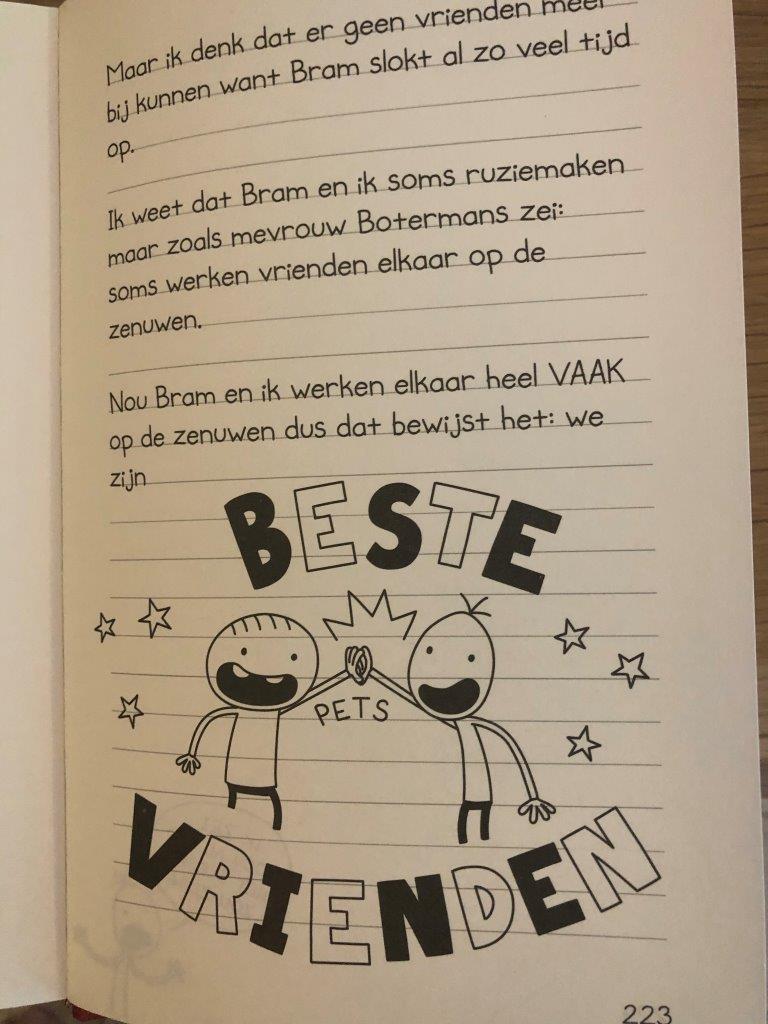 Maar ik denk dat er geen vrienden meer
bij kunnen want Bram slokt al zo veel tijd
op.
Ik weet dat Bram en ik soms ruziemaken
maar zoals mevrouw Botermans zei:
soms werken vrienden elkaar op de
zenuwen.
Nou Bram en ik werken elkaar heel VAAK
op de zenuwen dus dat bewijst het: we
zijn
BESTE
PETS
VRIENDEN
223